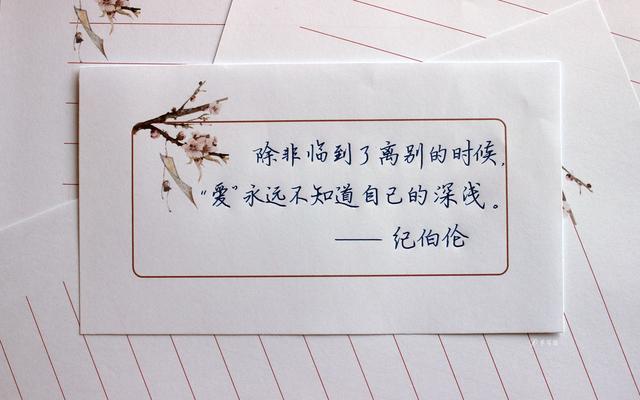 除非临到了离别的时候,
“爱”永远不知道自己的深浅。
——纪伯伦